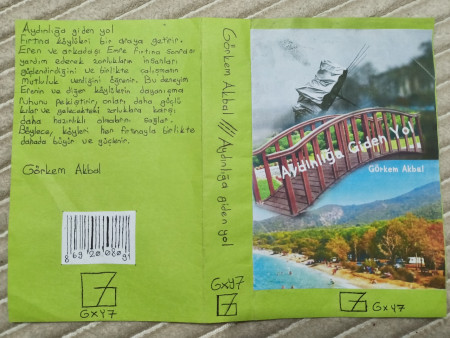 Aydınlığa giden yol
Fırtına köylüleri bir araya getirir.
Eren ve arkadaşı Emre fırtına sonrası
yardım ederek zorlukların insanları
güçlendirdiğini ve birlikte çalışmanın
Mutluluk verdiğini öğrenir. Bu deneyim
Erenin ve diğer köylülerin dayanışma
ruhunu pekiştirir, onları daha güçlü
kılar ve gelecekteki zorluklara karşı
daha hazırlıklı olmalarını sağlar.
Böylece, köyleri her fırtınayla birlikte
dahada büyür ve güçlenir.
Görkem Akbal
GXY7
Görkem Akbal /// Aydınlığa giden yol
GXY7
Aydınlığa Giden Yol
Görkem Akbal
GXY7